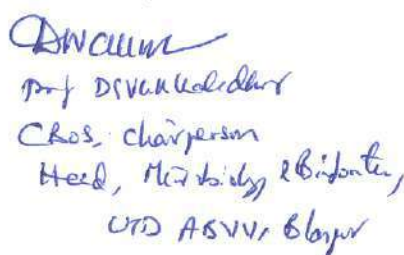 Prof DSVGK Kaladhar
CBOS, Chairperson
Head, Microbiology & Bioinformatics,
UTD ABVV, Bilaspur